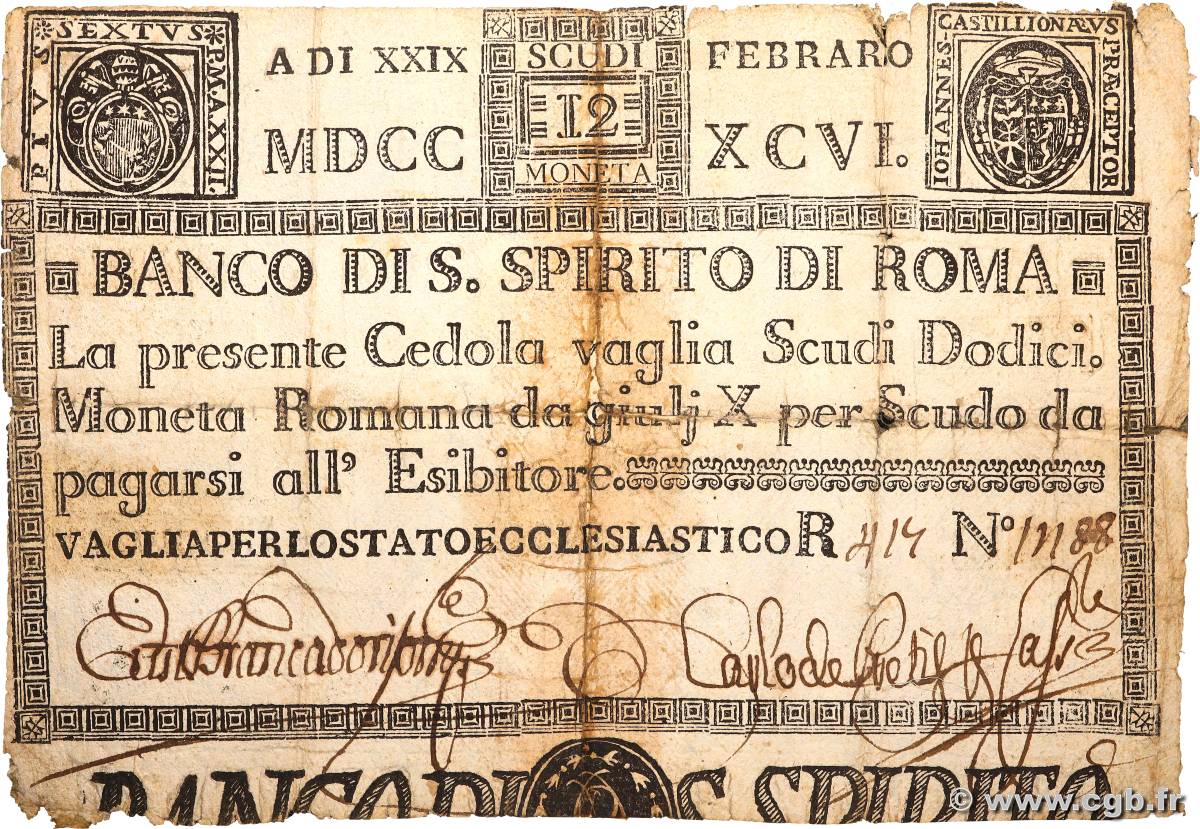 PIUS * SEXTVS * P. M. A. XXII.
A DI XXIX
SCUDI
FEBRARO
IOHANNES - CASTILLIONÆVS PRÆCEPTOR
12
MDCC
XCVI.
MONETA
BANCO DI S. SPIRITO DI ROMA
La presente Cedola vaglia Scudi Dodici.
Moneta Romana da giulj X per Scudo da
pagarsi all' Esibitore.
VAGLIAPERLOSTATOECCLESIASTICO R 414 No 11188
Carlo de
BANCO DI S. SPIRITO
© www.cgb.fr